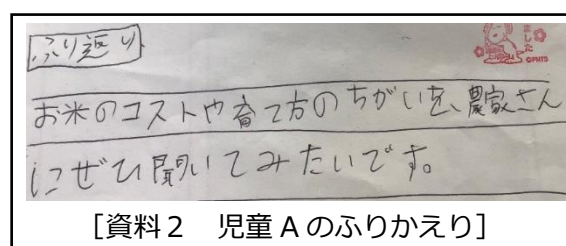 ふり返り
ました
©PNTS
お米のコストや育て方のちがいを、農家さん
にぜひ聞いてみたいです。
[資料2 児童Aのふりかえり]